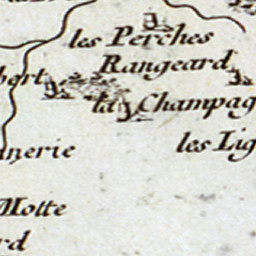 les Perches
Rangeard
la Champag
les Lig
nerie
Motte
rd